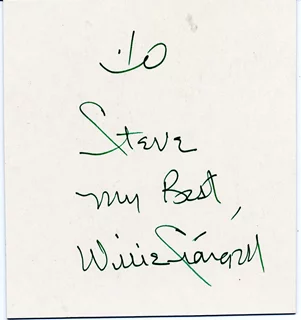 To
Steve
My Best,
Willie Stargell